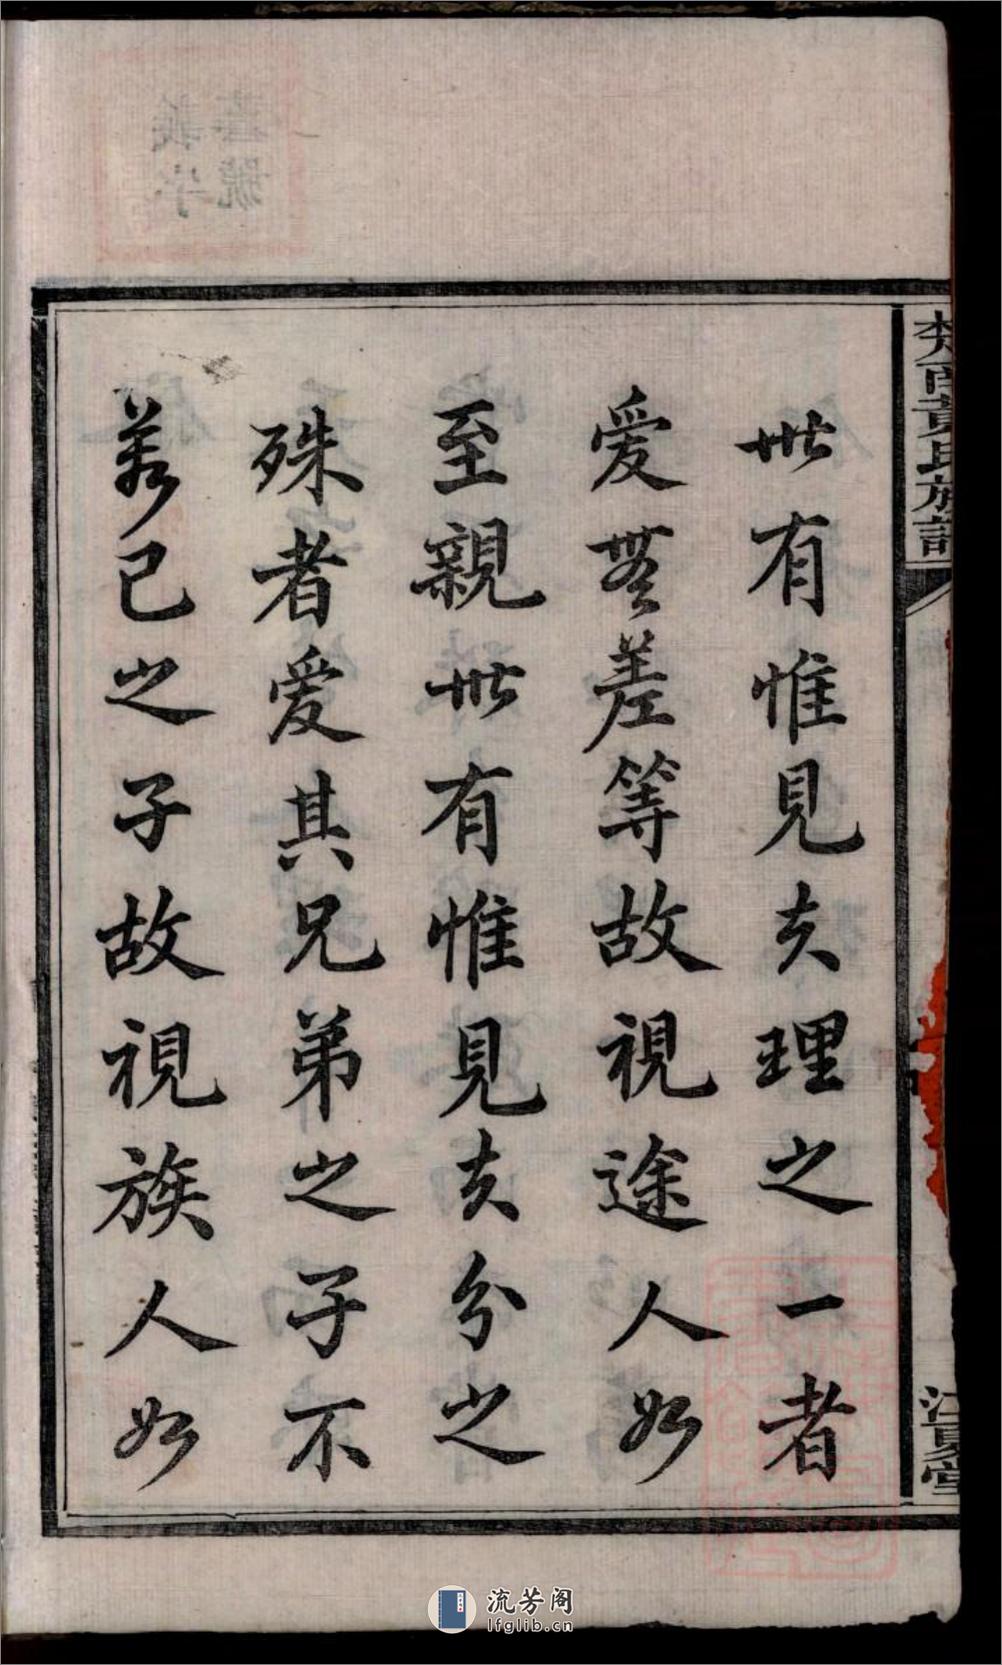 世有惟見夫理之一者
愛無差等故視途人如
至親世有惟見夫分之
殊者愛其兄弟之子不
若己之子故視族人如
楚南黃氏族譜
江夏堂
流芳阁
lfglib.cn